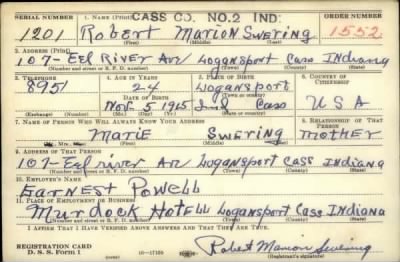 SERIAL NUMBER 1. NAME (Print) CASS CO. NO. 2 IND: ORDER NUMBER
1201 Robert Marion Swering 1552
2. ADDRESS (Print)
107- Eel River Av Logansport Cass Indiana
(Number and street or R. F. D. number) (Town) (County) (State)
3. TELEPHONE 4. AGE IN YEARS 5. PLACE OF BIRTH 6. COUNTRY OF CITIZENSHIP
8951 24 Logansport
DATE OF BIRTH
Nov. 5 1915 Ind Cass USA
(Exchange) (Number) (Mo.) (Day) (Yr.) (State or country)
7. NAME OF PERSON WHO WILL ALWAYS KNOW YOUR ADDRESS 8. RELATIONSHIP OF THAT PERSON
Marie Swering Mother
9. ADDRESS OF THAT PERSON
107- Eel river Av Logansport Cass Indiana
(Number and street or R. F. D. number) (Town) (County) (State)
10. EMPLOYER'S NAME
Earnest Powell
11. PLACE OF EMPLOYMENT OR BUSINESS
Murdock Hotell Logansport Cass Indiana
(Number and street or R. F. D. number) (Town) (County) (State)
I AFFIRM THAT I HAVE VERIFIED ABOVE ANSWERS AND THAT THEY ARE TRUE.
REGISTRATION CARD
D. S. S. Form 1 16-17105 Robert Marion Swering
(Registrant's signature)